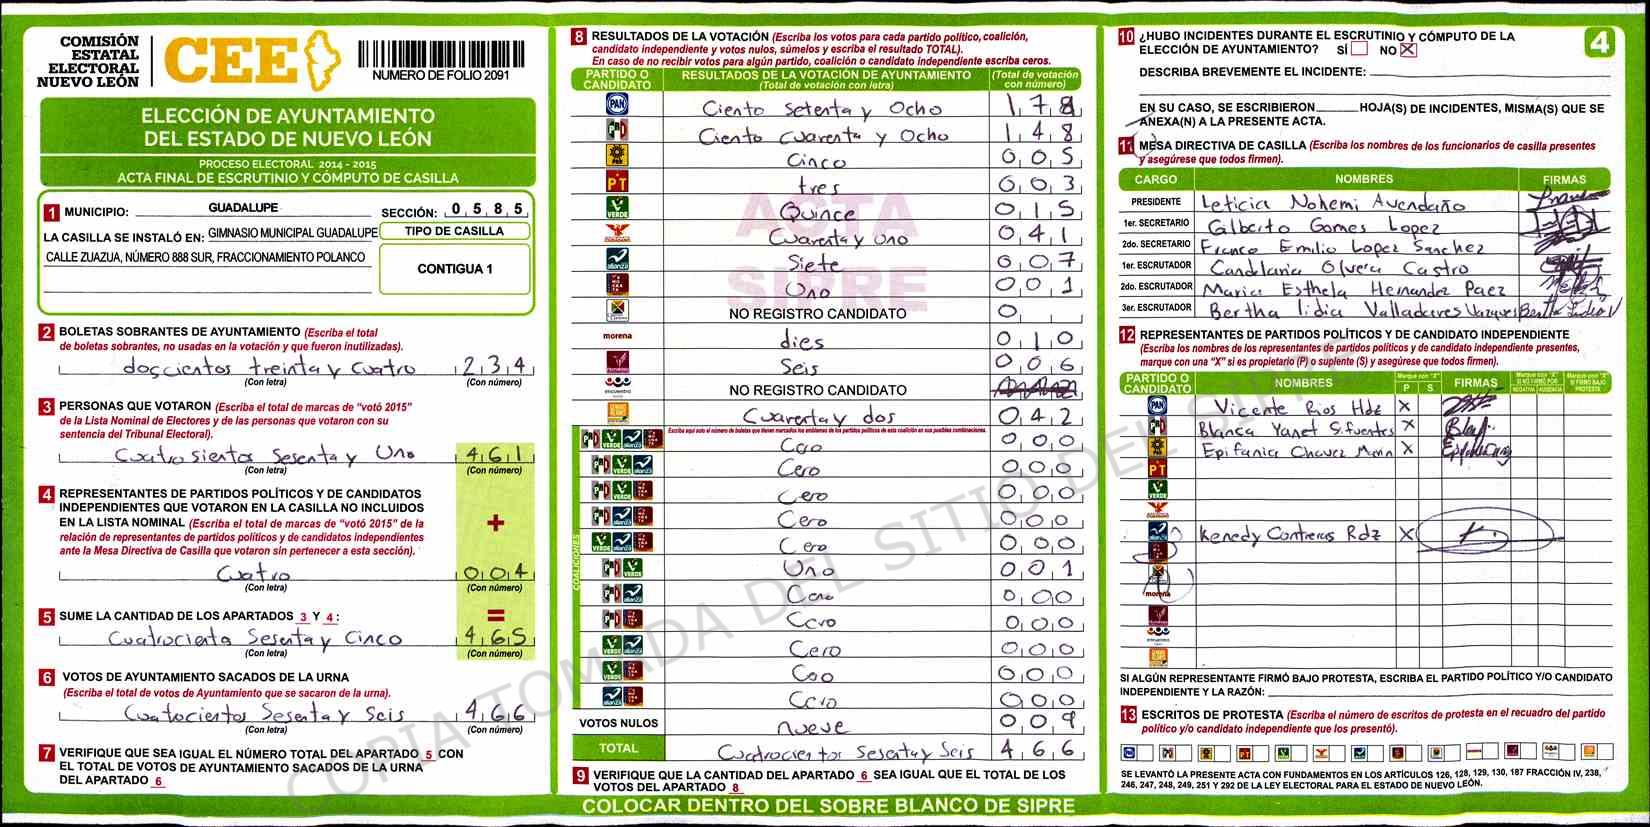 COMISIÓN
ESTATAL
ELECTORAL
NUEVO LEÓN
CEE
NUMERO DE FOLIO 2091
ELECCIÓN DE AYUNTAMIENTO
DEL ESTADO DE NUEVO LEÓN
PROCESO ELECTORAL 2014 - 2015
ACTA FINAL DE ESCRUTINIO Y CÓMPUTO DE CASILLA
1 MUNICIPIO: GUADALUPE SECCIÓN: 0585
LA CASILLA SE INSTALÓ EN: GIMNASIO MUNICIPAL GUADALUPE
CALLE ZUAZUA, NÚMERO 888 SUR, FRACCIONAMIENTO POLANCO
TIPO DE CASILLA
CONTIGUA 1
2 BOLETAS SOBRANTES DE AYUNTAMIENTO (Escriba el total
de boletas sobrantes, no usadas en la votación y que fueron inutilizadas).
doscientos treinta y cuatro 234
(Con letra) (Con número)
3 PERSONAS QUE VOTARON (Escriba el total de marcas de "votó 2015"
de la Lista Nominal de Electores y de las personas que votaron con su
sentencia del Tribunal Electoral).
Cuatrosientos Sesenta y Uno 461
(Con letra) (Con número)
4 REPRESENTANTES DE PARTIDOS POLÍTICOS Y DE CANDIDATOS
INDEPENDIENTES QUE VOTARON EN LA CASILLA NO INCLUIDOS
EN LA LISTA NOMINAL (Escriba el total de marcas de "votó 2015" de la
relación de representantes de partidos políticos y de candidatos independientes
ante la Mesa Directiva de Casilla que votaron sin pertenecer a esta sección).
+
Cuatro 004
(Con letra) (Con número)
5 SUME LA CANTIDAD DE LOS APARTADOS 3 Y 4:
=
Cuatrocienta Sesenta y Cinco 465
(Con letra) (Con número)
6 VOTOS DE AYUNTAMIENTO SACADOS DE LA URNA
(Escriba el total de votos de Ayuntamiento que se sacaron de la urna).
Cuatocientos Sesenta y Seis 466
(Con letra) (Con número)
7 VERIFIQUE QUE SEA IGUAL EL NÚMERO TOTAL DEL APARTADO 5 CON
EL TOTAL DE VOTOS DE AYUNTAMIENTO SACADOS DE LA URNA
DEL APARTADO 6
8 RESULTADOS DE LA VOTACIÓN (Escriba los votos para cada partido político, coalición,
candidato independiente y votos nulos, súmelos y escriba el resultado TOTAL).
En caso de no recibir votos para algún partido, coalición o candidato independiente escriba ceros.
PARTIDO O CANDIDATO RESULTADOS DE LA VOTACIÓN DE AYUNTAMIENTO (Total de votación con letra) (Total de votación con número)
PAN Ciento Setenta y Ocho 178
PRI Ciento Cuarenta y Ocho 148
PRD Cinco 005
PT tres 003
VERDE Quince 015
Cuarenta y Uno 041
alianza Siete 007
Uno 001
NO REGISTRO CANDIDATO 0
morena dies 010
Seis 006
encuentro NO REGISTRO CANDIDATO
Cuarenta y dos 042
Escriba aquí solo el número de boletas que tienen marcados los emblemas de los partidos políticos de esta coalición en sus posibles combinaciones.
COALICIONES
Cero 000
Cero 000
Cero 000
Cero 000
Cero 000
Uno 001
Cero 000
Cero 000
Cero 000
Cero 000
Cero 000
VOTOS NULOS nueve 009
TOTAL Cuatrocientos Sesenta y Seis 466
9 VERIFIQUE QUE LA CANTIDAD DEL APARTADO 6 SEA IGUAL QUE EL TOTAL DE LOS
VOTOS DEL APARTADO 8
COLOCAR DENTRO DEL SOBRE BLANCO DE SIPRE
ACTA
SIPRE
COPIA TOMADA DEL SITIO DEL SIPRE
10 ¿HUBO INCIDENTES DURANTE EL ESCRUTINIO Y CÓMPUTO DE LA
ELECCIÓN DE AYUNTAMIENTO? SÍ NO X
4
DESCRIBA BREVEMENTE EL INCIDENTE:
EN SU CASO, SE ESCRIBIERON HOJA(S) DE INCIDENTES, MISMA(S) QUE SE
ANEXA(N) A LA PRESENTE ACTA.
11 MESA DIRECTIVA DE CASILLA (Escriba los nombres de los funcionarios de casilla presentes
y asegúrese que todos firmen).
CARGO NOMBRES FIRMAS
PRESIDENTE Leticia Nohemi Avendaño
1er. SECRETARIO Gilberto Gomes Lopez
2do. SECRETARIO Franco Emilio Lopez Sanchez
1er. ESCRUTADOR Candelaria Olvera Castro
2do. ESCRUTADOR Maria Esthela Hernandez Paez
3er. ESCRUTADOR Bertha lidia Valladares Vazquez Bertha Lidia V
12 REPRESENTANTES DE PARTIDOS POLÍTICOS Y DE CANDIDATO INDEPENDIENTE
(Escriba los nombres de los representantes de partidos políticos y de candidato independiente presentes,
marque con una "X" si es propietario (P) o suplente (S) y asegúrese que todos firmen).
PARTIDO O CANDIDATO NOMBRES Marque con "X" P S FIRMAS
PAN Vicente Rios Hdz X
Blanca Yanet Sifuentes X
Epifania Chavez Marin X
PT
VERDE
Kenedy Contreras Rdz X
morena
SI ALGÚN REPRESENTANTE FIRMÓ BAJO PROTESTA, ESCRIBA EL PARTIDO POLÍTICO Y/O CANDIDATO
INDEPENDIENTE Y LA RAZÓN:
13 ESCRITOS DE PROTESTA (Escriba el número de escritos de protesta en el recuadro del partido
político y/o candidato independiente que los presentó).
SE LEVANTÓ LA PRESENTE ACTA CON FUNDAMENTOS EN LOS ARTÍCULOS 126, 128, 129, 130, 187 FRACCIÓN IV, 238,
246, 247, 248, 249, 251 Y 292 DE LA LEY ELECTORAL PARA EL ESTADO DE NUEVO LEÓN.